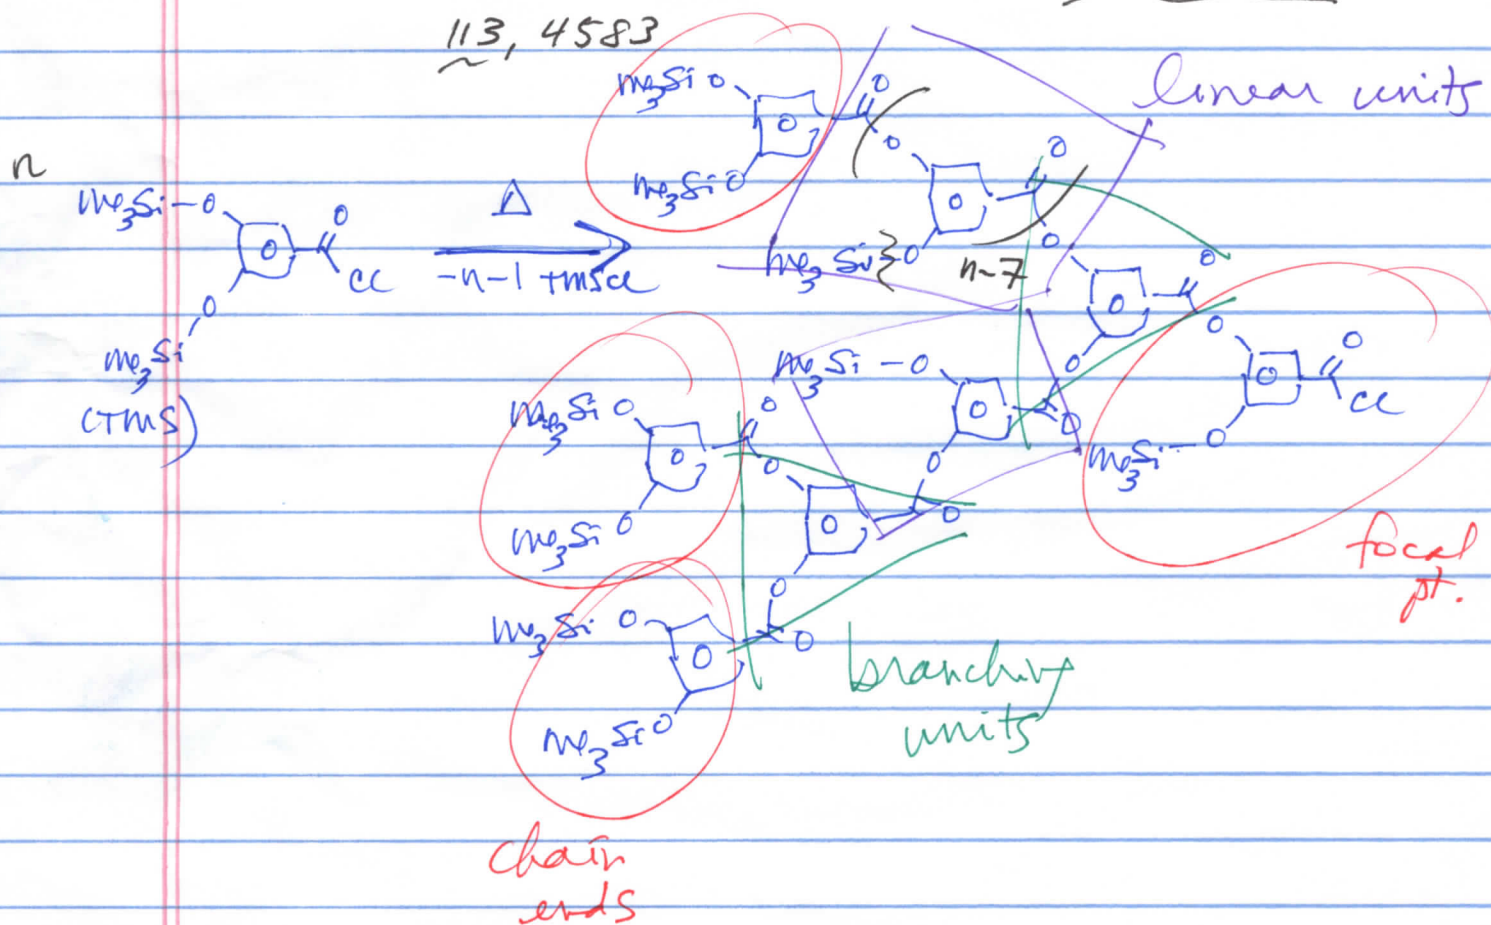 113, 4583
linear units
n
Me3Si-O
O
O
Cl
O
Me3Si
(TMS)
Δ
-n-1 TMSCl
Me3Si O
O
O
O
Me3SiO
O
O
O
Me3Si}O
n-7
O
O
O
O
O
O
O
O
O
Cl
Me3Si-O
Me3Si-O
O
O
O
O
O
Me3Si O
O
O
O
O
O
Me3SiO
O
Me3Si O
O
O
Me3SiO
focal
pt.
branching
units
chain
ends